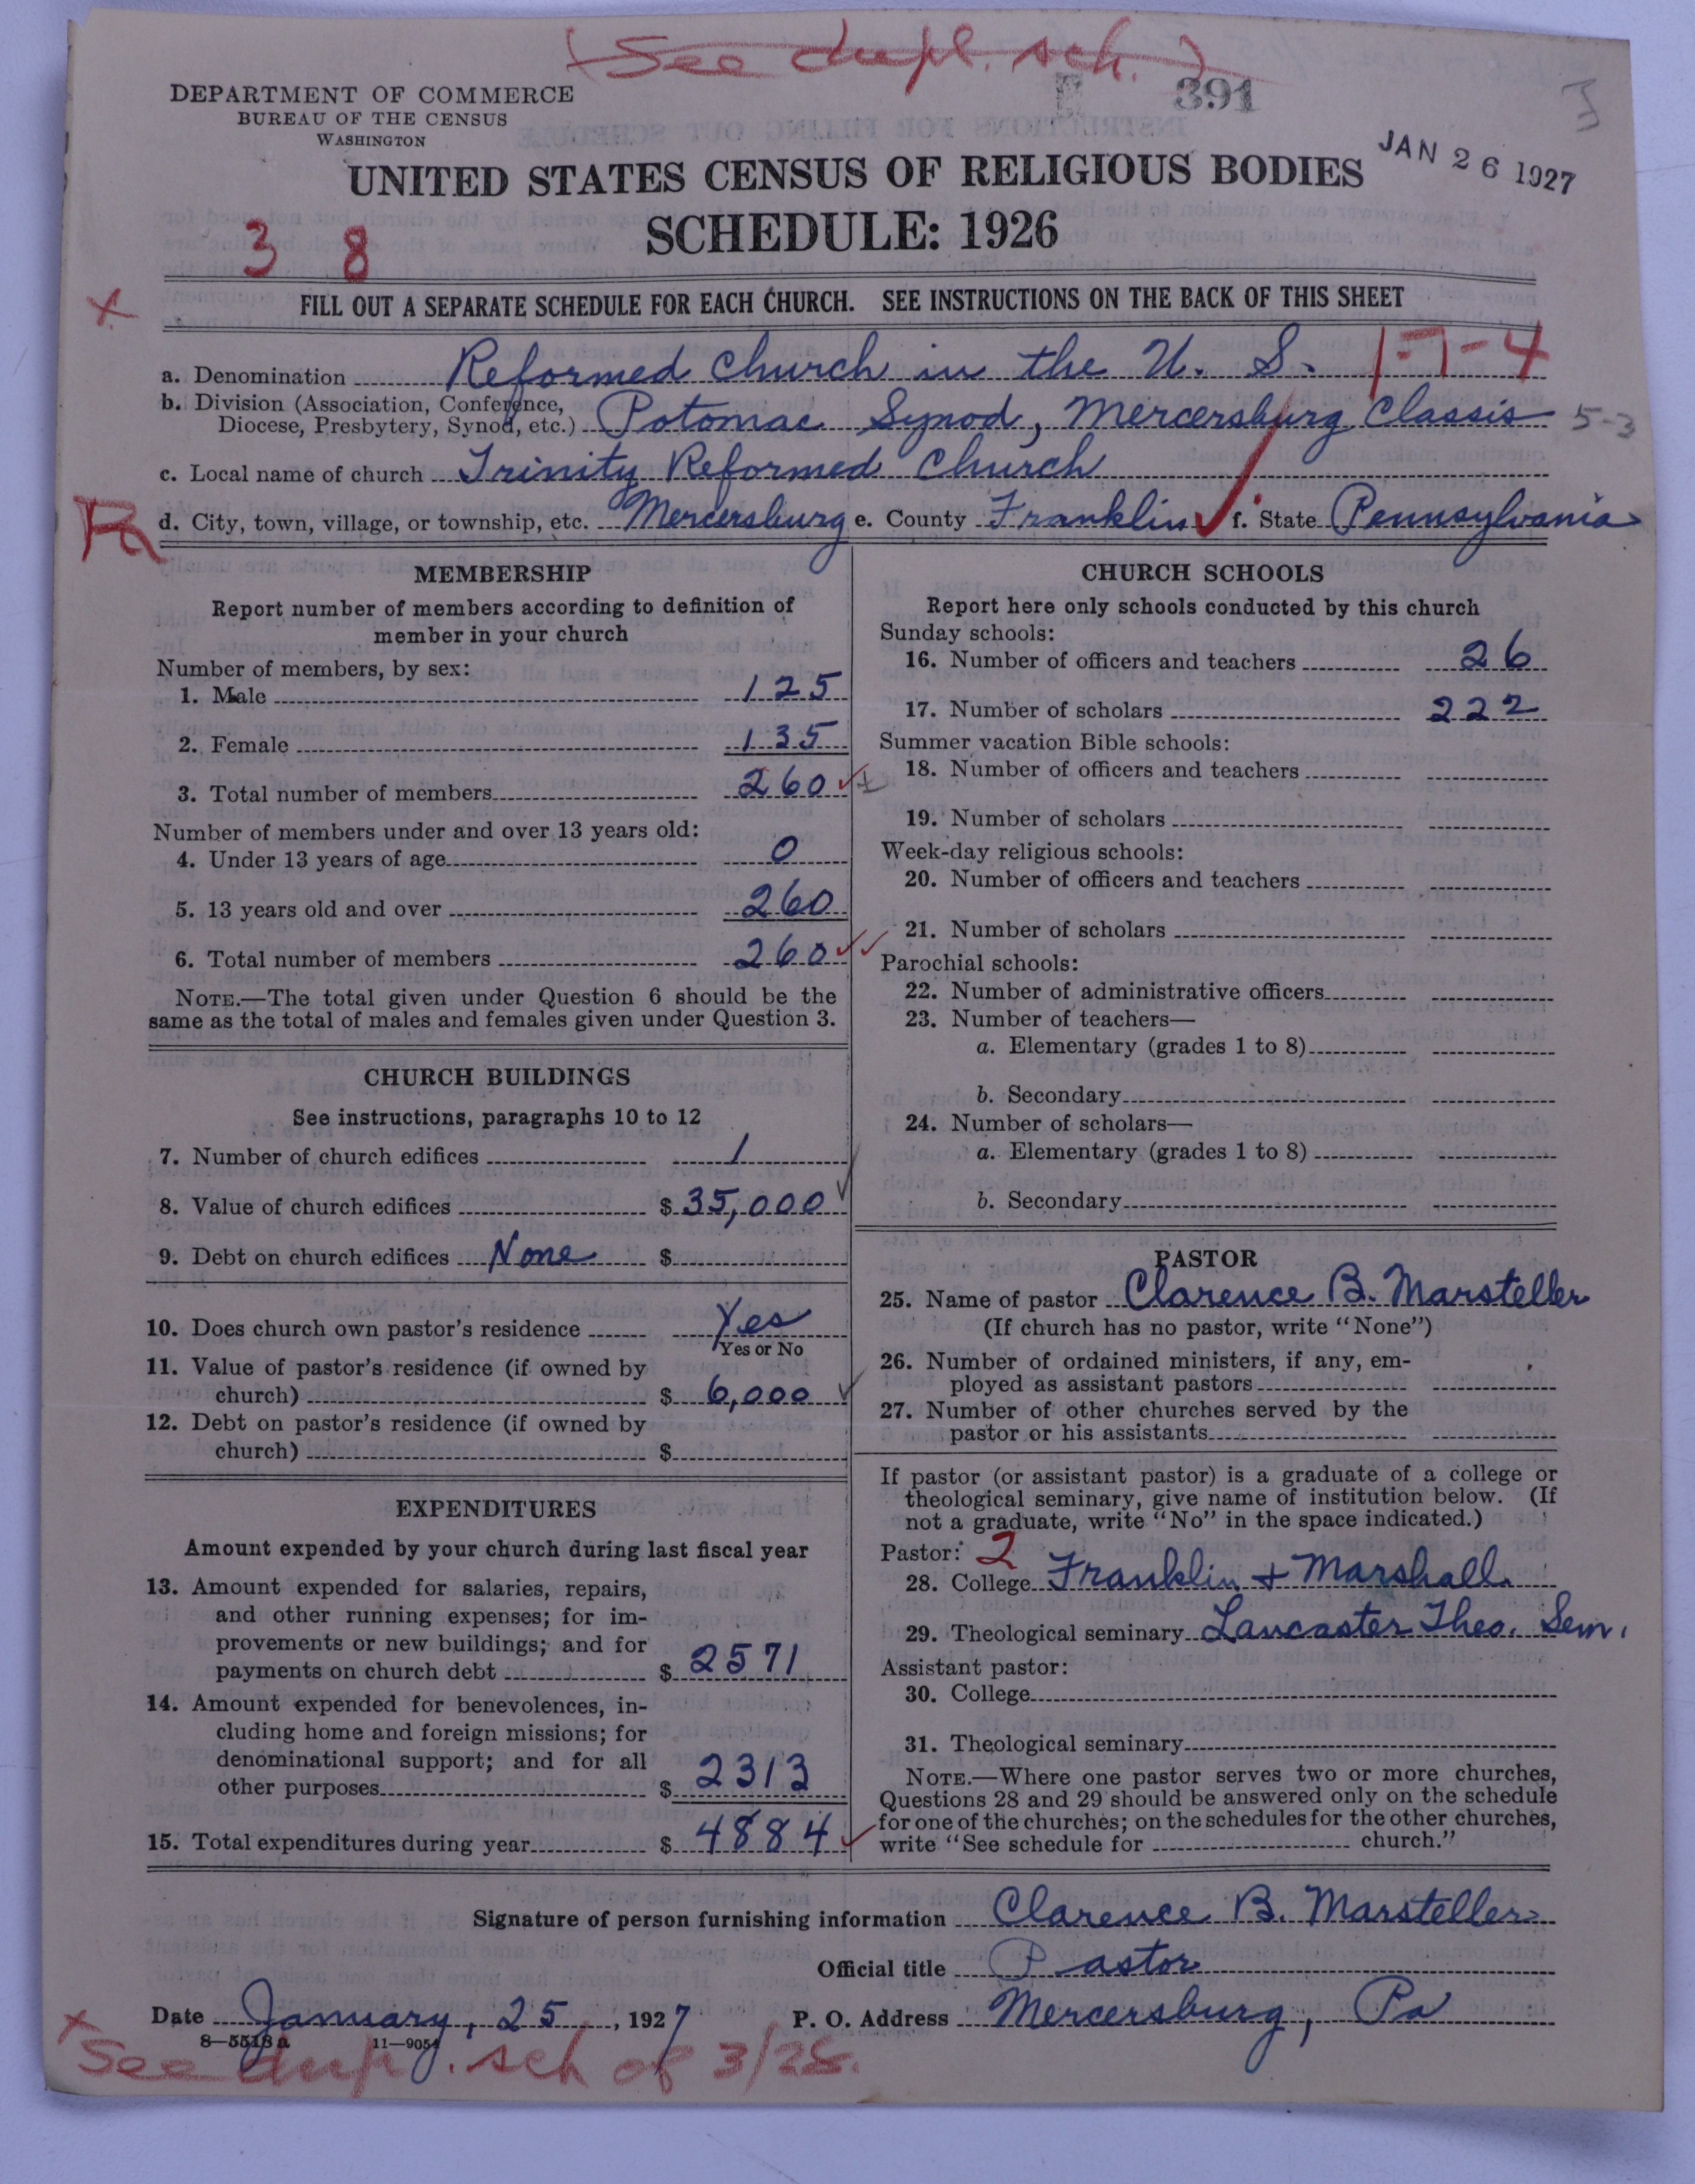 (See dupl. sch.)
391
DEPARTMENT OF COMMERCE
BUREAU OF THE CENSUS
WASHINGTON
JAN 26 1927
UNITED STATES CENSUS OF RELIGIOUS BODIES
SCHEDULE: 1926
3 8
FILL OUT A SEPARATE SCHEDULE FOR EACH CHURCH. SEE INSTRUCTIONS ON THE BACK OF THIS SHEET
a. Denomination Reformed Church in the U. S. 1-7-4
b. Division (Association, Conference, Diocese, Presbytery, Synod, etc.) Potomac Synod, Mercersburg Classis 5-3
c. Local name of church Trinity Reformed Church
Pa d. City, town, village, or township, etc. Mercersburg e. County Franklin f. State Pennsylvania
MEMBERSHIP
Report number of members according to definition of
member in your church
Number of members, by sex:
1. Male 125
2. Female 135
3. Total number of members 260
Number of members under and over 13 years old:
4. Under 13 years of age 0
5. 13 years old and over 260
6. Total number of members 260
NOTE.—The total given under Question 6 should be the
same as the total of males and females given under Question 3.
CHURCH BUILDINGS
See instructions, paragraphs 10 to 12
7. Number of church edifices 1
8. Value of church edifices $ 35,000
9. Debt on church edifices None $
10. Does church own pastor's residence Yes
Yes or No
11. Value of pastor's residence (if owned by
church) $ 6,000
12. Debt on pastor's residence (if owned by
church) $
EXPENDITURES
Amount expended by your church during last fiscal year
13. Amount expended for salaries, repairs,
and other running expenses; for im-
provements or new buildings; and for
payments on church debt $ 2571
14. Amount expended for benevolences, in-
cluding home and foreign missions; for
denominational support; and for all
other purposes $ 2313
15. Total expenditures during year $ 4884
CHURCH SCHOOLS
Report here only schools conducted by this church
Sunday schools:
16. Number of officers and teachers 26
17. Number of scholars 222
Summer vacation Bible schools:
18. Number of officers and teachers
19. Number of scholars
Week-day religious schools:
20. Number of officers and teachers
21. Number of scholars
Parochial schools:
22. Number of administrative officers
23. Number of teachers—
a. Elementary (grades 1 to 8)
b. Secondary
24. Number of scholars—
a. Elementary (grades 1 to 8)
b. Secondary
PASTOR
25. Name of pastor Clarence B. Marsteller
(If church has no pastor, write "None")
26. Number of ordained ministers, if any, em-
ployed as assistant pastors
27. Number of other churches served by the
pastor or his assistants
If pastor (or assistant pastor) is a graduate of a college or
theological seminary, give name of institution below. (If
not a graduate, write "No" in the space indicated.)
Pastor: 2
28. College Franklin + Marshall
29. Theological seminary Lancaster Theo. Sem.
Assistant pastor:
30. College
31. Theological seminary
NOTE.—Where one pastor serves two or more churches,
Questions 28 and 29 should be answered only on the schedule
for one of the churches; on the schedules for the other churches,
write "See schedule for church."
Signature of person furnishing information Clarence B. Marsteller
Official title Pastor
Date January, 25, 1927 P. O. Address Mercersburg, Pa
8—5513a 11—9054
See dup. sch of 3/28.